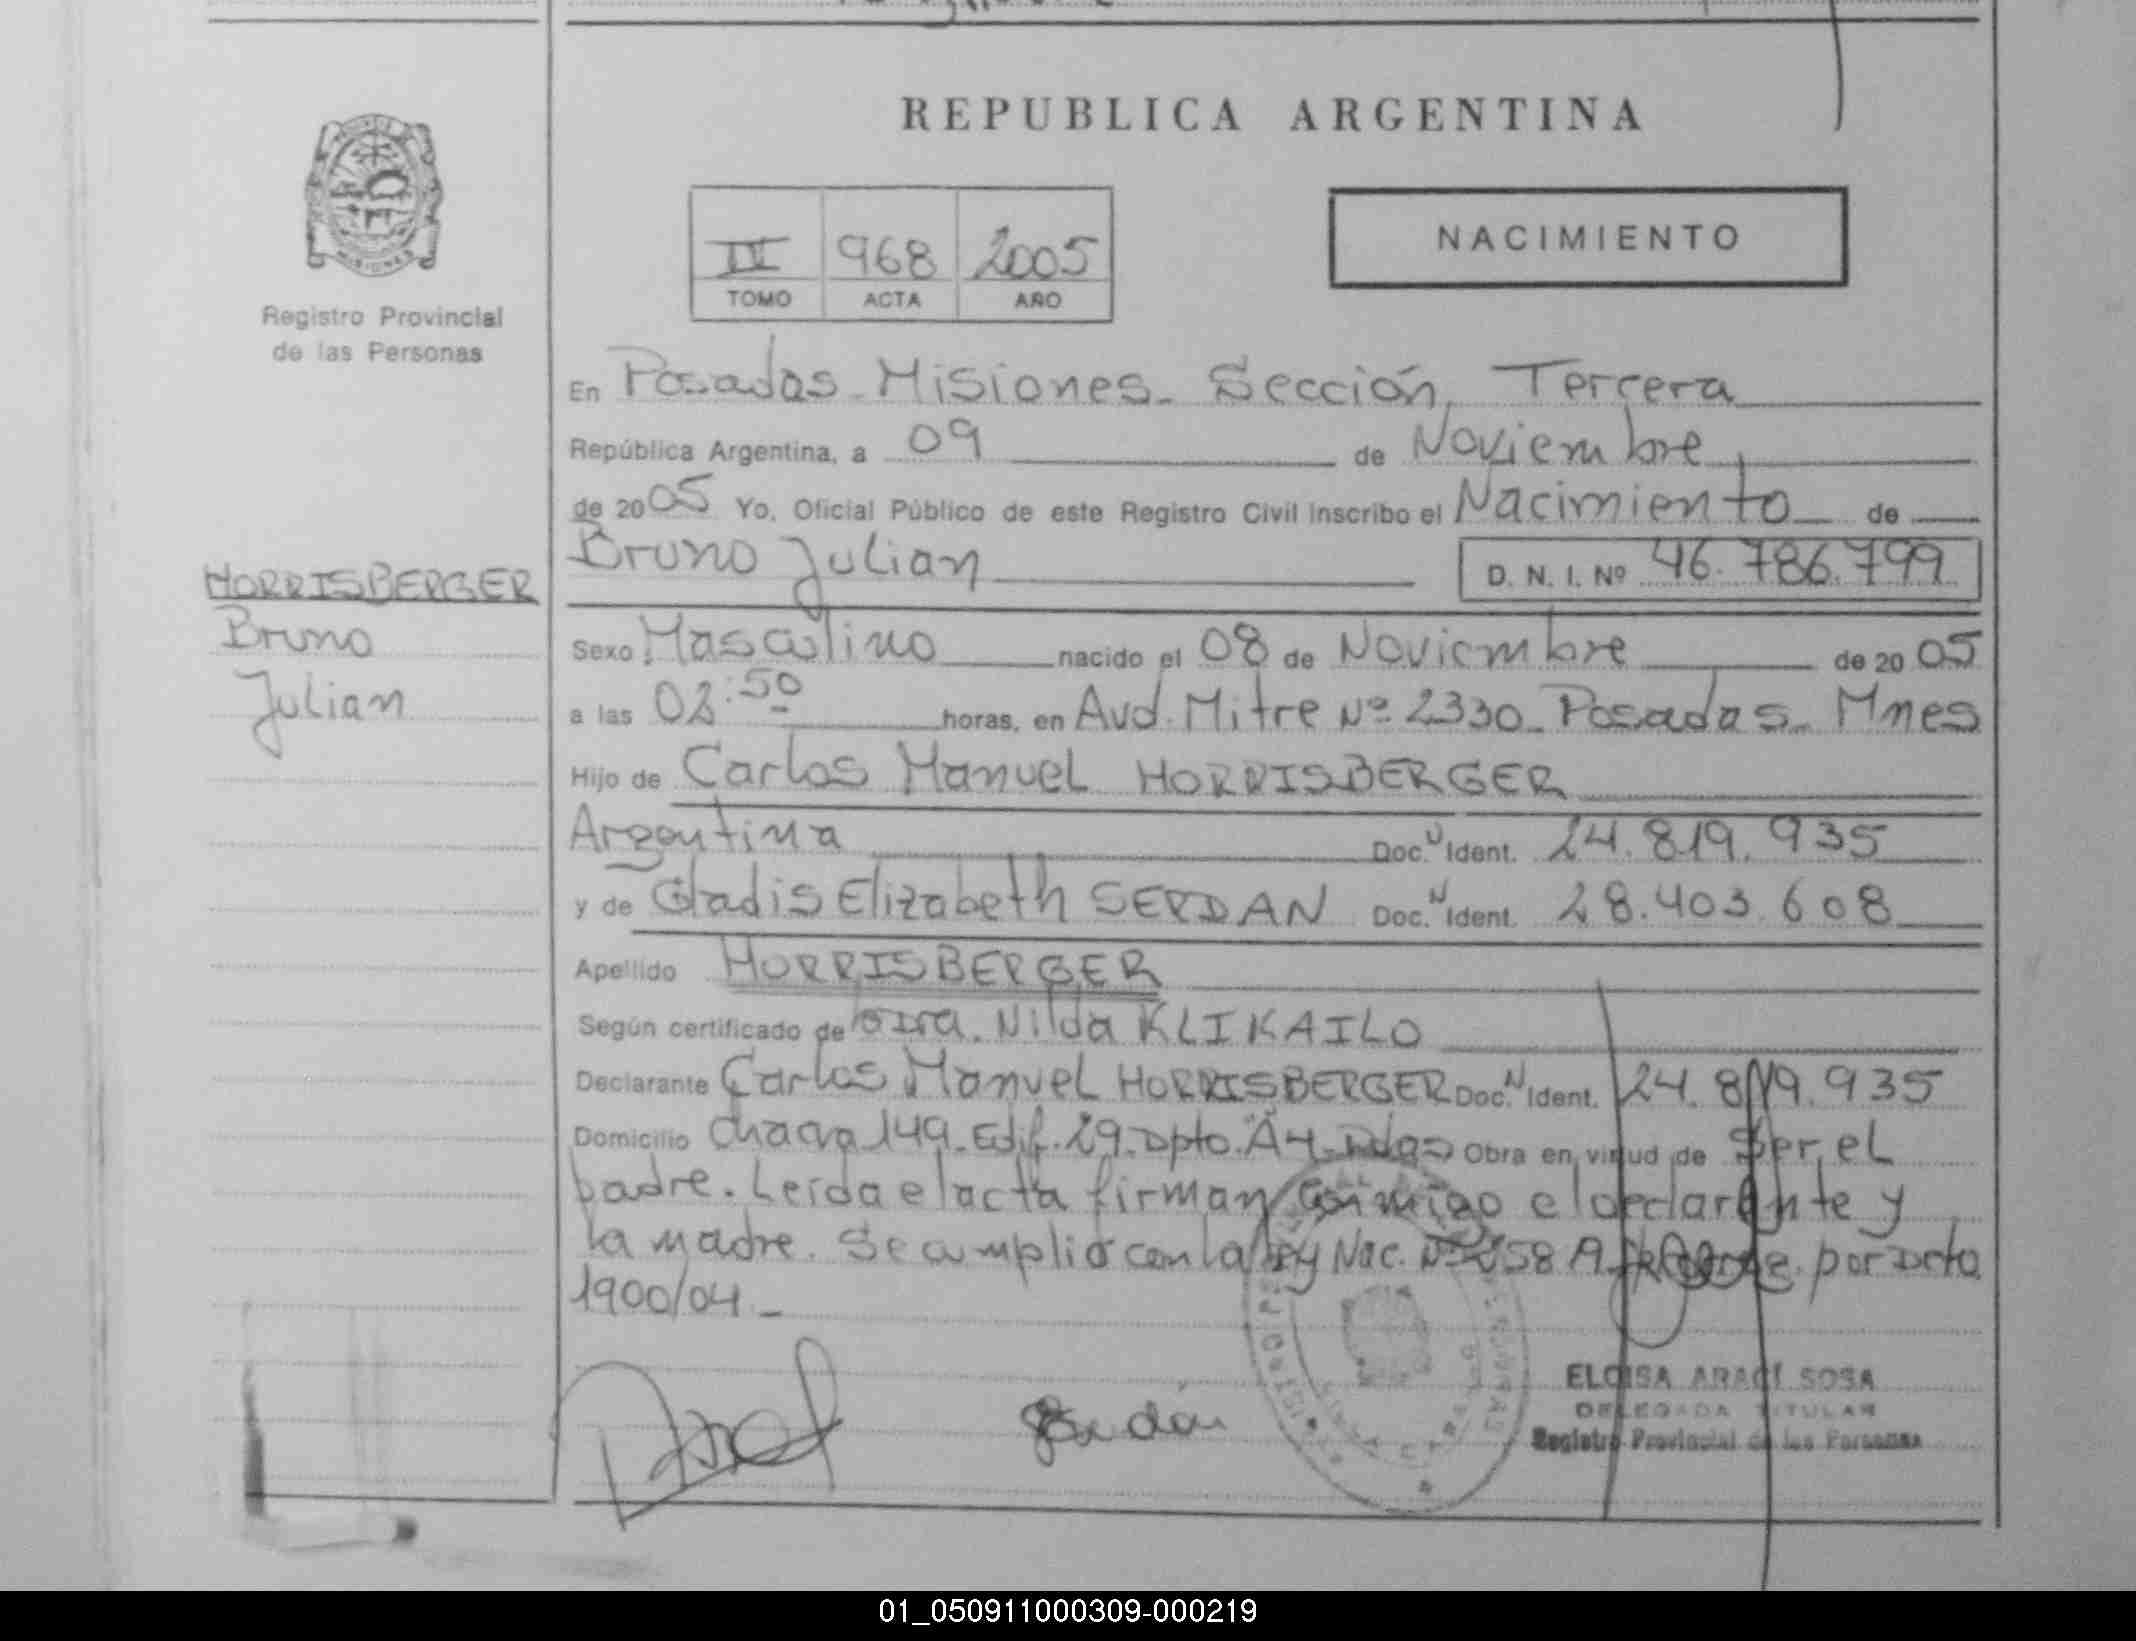 REPUBLICA ARGENTINA
MISIONES
Registro Provincial
de las Personas
IV 968 2005
TOMO ACTA AÑO
NACIMIENTO
En Posadas - Misiones - Sección Tercera
República Argentina, a 09 de Noviembre
de 2005 Yo, Oficial Público de este Registro Civil inscribo el Nacimiento de
Bruno Julian D. N. I. Nº 46.786.799
HORRISBERGER
Bruno
Julian
Sexo Masculino nacido el 08 de Noviembre de 2005
a las 02:50 horas, en Avd. Mitre Nº 2330 - Posadas - Mnes
Hijo de Carlos Manuel HORRISBERGER
Argentina Doc. N Ident. 24.819.935
y de Gladis Elizabeth SERDAN Doc. N Ident. 28.403.608
Apellido HORRISBERGER
Según certificado de Dra. Nilda KLIKAILO
Declarante Carlos Manuel HORRISBERGER Doc. N Ident. 24.819.935
Domicilio Chacra 149 - Edif. 29 - Dpto. "A4 - Pdas Obra en virtud de Ser el
padre. Leída el acta firman conmigo el declarante y
la madre. Se cumplió con la Ley Nac. por Dcto
1900/04 -
Serdán
ELOISA ARACI SOSA
DELEGADA TITULAR
Registro Provincial de las Personas
01_050911000309-000219